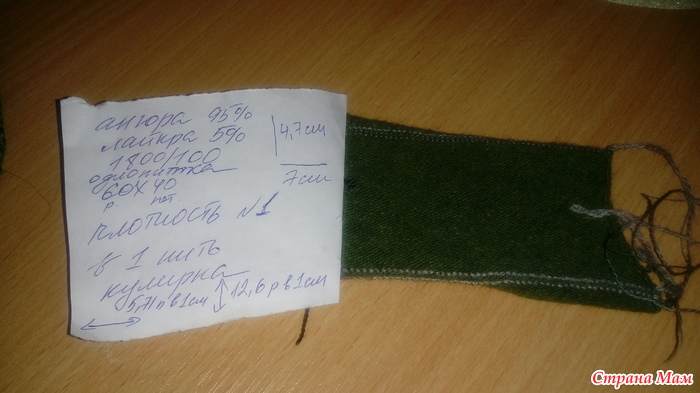 ангора 95%
лайкра 5%
1800/100
однонитка
60 х 40
р пет
4,7см
7см
плотность №1
в 1 нить
кулирка
5,71 п в 1см
12,6 р в 1см
Страна Мам